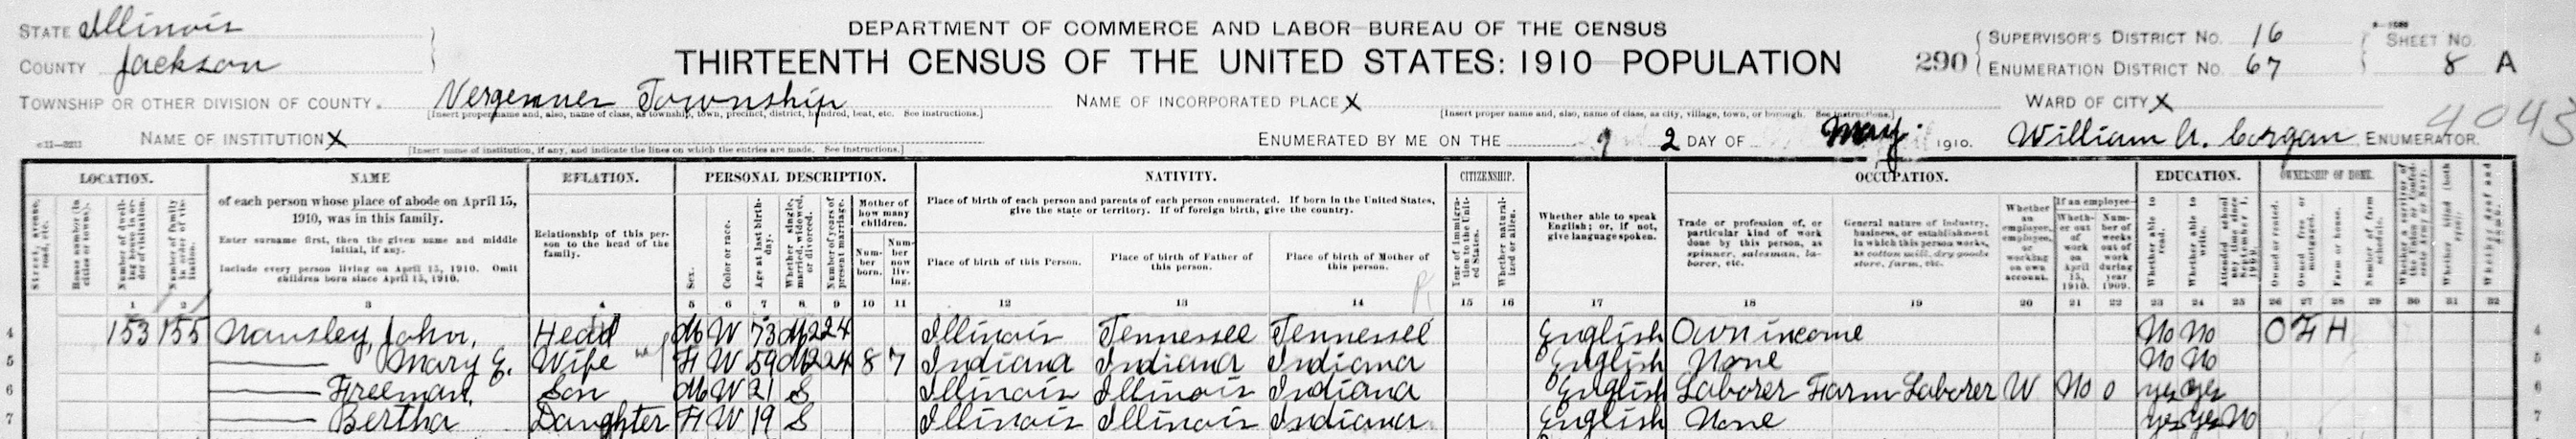 STATE Illinois
DEPARTMENT OF COMMERCE AND LABOR—BUREAU OF THE CENSUS
COUNTY Jackson
THIRTEENTH CENSUS OF THE UNITED STATES: 1910—POPULATION
290
SUPERVISOR'S DISTRICT No. 16
ENUMERATION DISTRICT No. 67
SHEET No.
8 A
TOWNSHIP OR OTHER DIVISION OF COUNTY. Vergennes Township
[Insert proper name and, also, name of class, as township, town, precinct, district, hundred, beat, etc. See instructions.]
NAME OF INCORPORATED PLACE X
[Insert proper name and, also, name of class, as city, village, town, or borough. See instructions.]
WARD OF CITY X
4043
NAME OF INSTITUTION X
[Insert name of institution, if any, and indicate the lines on which the entries are made. See instructions.]
ENUMERATED BY ME ON THE 2 DAY OF May. 1910. William A. Corgan ENUMERATOR.
LOCATION.
Street, avenue, road, etc.
House number (in cities or towns).
Number of dwelling house in order of visitation.
Number of family in order of visitation.
NAME
of each person whose place of abode on April 15, 1910, was in this family.
Enter surname first, then the given name and middle initial, if any.
Include every person living on April 15, 1910. Omit children born since April 15, 1910.
RELATION.
Relationship of this person to the head of the family.
PERSONAL DESCRIPTION.
Sex.
Color or race.
Age at last birthday.
Whether single, married, widowed, or divorced.
Number of years of present marriage.
Mother of how many children.
Number born.
Number now living.
NATIVITY.
Place of birth of each person and parents of each person enumerated. If born in the United States, give the state or territory. If of foreign birth, give the country.
Place of birth of this Person.
Place of birth of Father of this person.
Place of birth of Mother of this person.
CITIZENSHIP.
Year of immigration to the United States.
Whether naturalized or alien.
Whether able to speak English; or, if not, give language spoken.
OCCUPATION.
Trade or profession of, or particular kind of work done by this person, as spinner, salesman, laborer, etc.
General nature of industry, business, or establishment in which this person works, as cotton mill, dry goods store, farm, etc.
Whether an employer, employee, or working on own account.
If an employee—
Whether out of work on April 15, 1910.
Number of weeks out of work during year 1909.
EDUCATION.
Whether able to read.
Whether able to write.
Attended school any time since September 1, 1909.
OWNERSHIP OF HOME.
Owned or rented.
Owned free or mortgaged.
Farm or house.
Number of farm schedule.
Whether a survivor of the Union or Confederate Army or Navy.
Whether blind (both eyes).
Whether deaf and dumb.
1 2 3 4 5 6 7 8 9 10 11 12 13 14 15 16 17 18 19 20 21 22 23 24 25 26 27 28 29 30 31 32
4 153 155 John, Head M W 73 M2 24 Illinois Tennessee Tennessee English Own income No No O F H 4
5 —— Mary E. Wife F W 59 M2 24 8 7 Indiana Indiana Indiana English None No No 5
6 —— Freeman, Son M W 21 S Illinois Illinois Indiana English Laborer Farm Laborer W No 0 yes yes 6
7 —— Bertha Daughter F W 19 S Illinois Illinois Indiana English None yes yes No 7